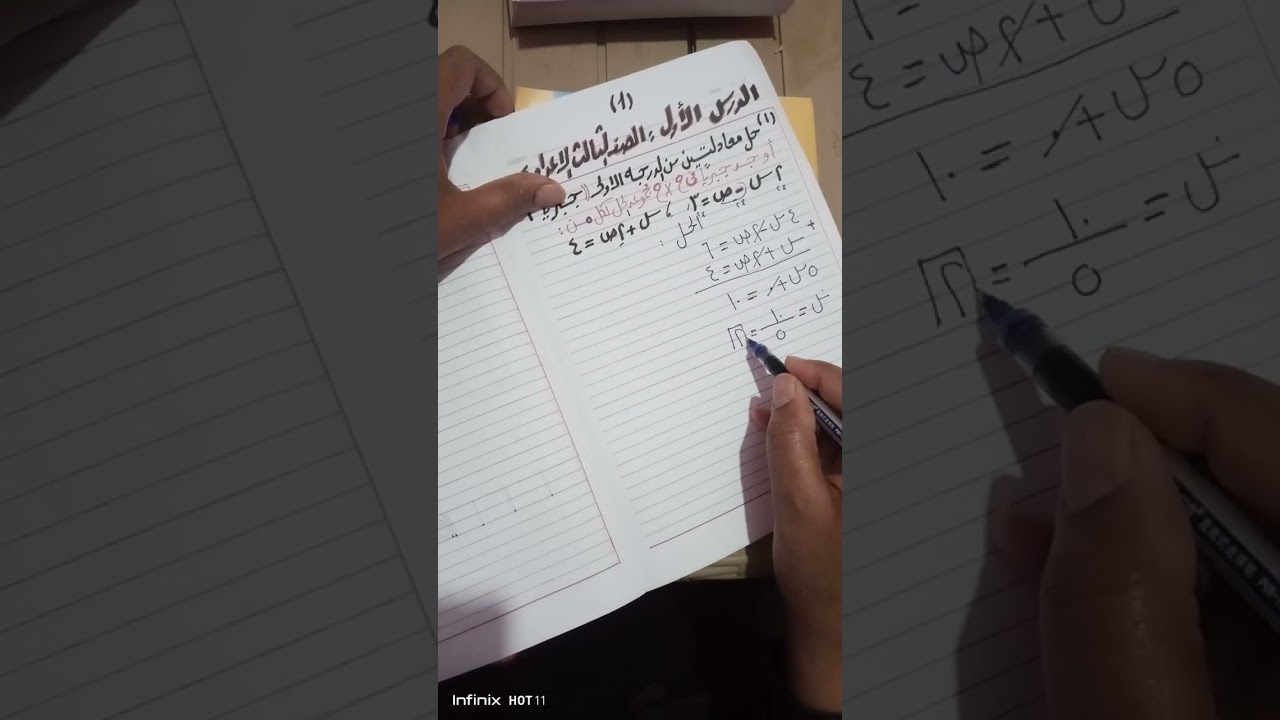 (١)
الدرس الأول: الصف الثالث الإعدادي
(١) حل معادلتين من الدرجة الأولى (جبريًا)
أوجد جبريًا في ح × ح مجموعة الحل لكل من:
٢س - ص = ٣ ، س + ٢ص = ٤
الحل:
٤س - ٢ص = ٦
+
س + ٢ص = ٤
٥س + ٠ = ١٠
س = ١٠/٥ = ٢
Infinix HOT 11